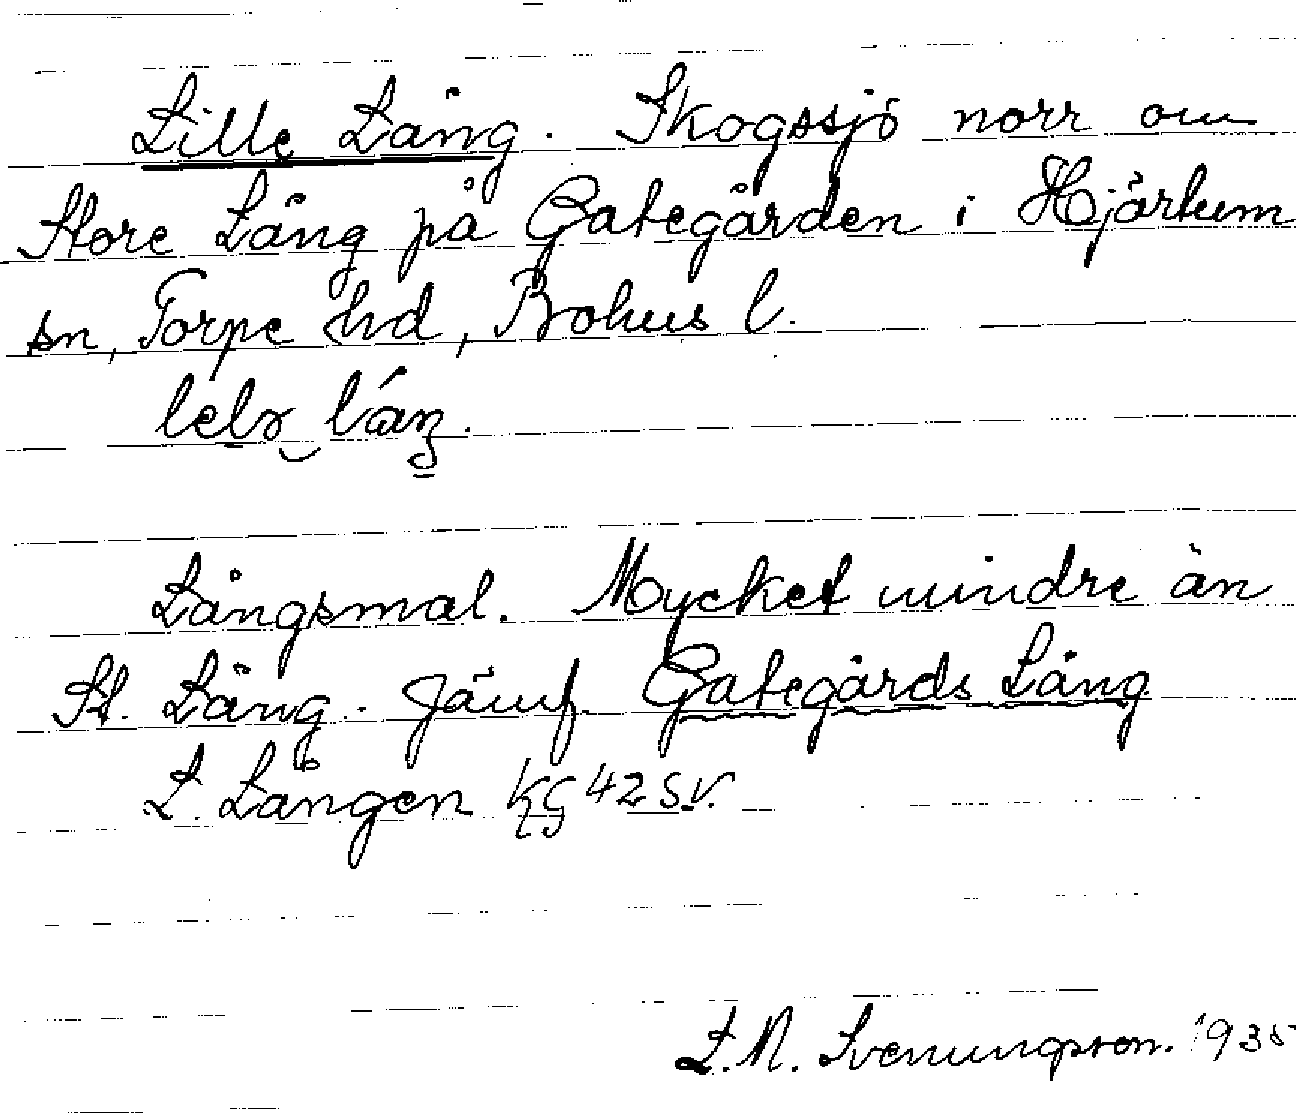 Lille Lång. Skogssjö norr om
Store Lång på Gategården i Hjärtum
sn, Torpe hd, Bohus l.
Långsmal. Mycket mindre än
St. Lång. Jämf. Gategårds Lång
L. Lången KG 42 SV.
L.M. Svenungsson. 1935